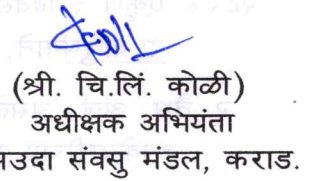 (श्री. चि.लिं. कोळी)
अधीक्षक अभियंता
मउदा संवसु मंडल, कराड.